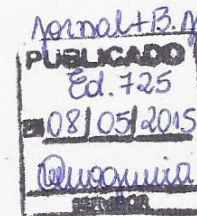 Jornal + B.M
PUBLICADO
Ed. 725
EM 08/05/2015
SERVIDOR